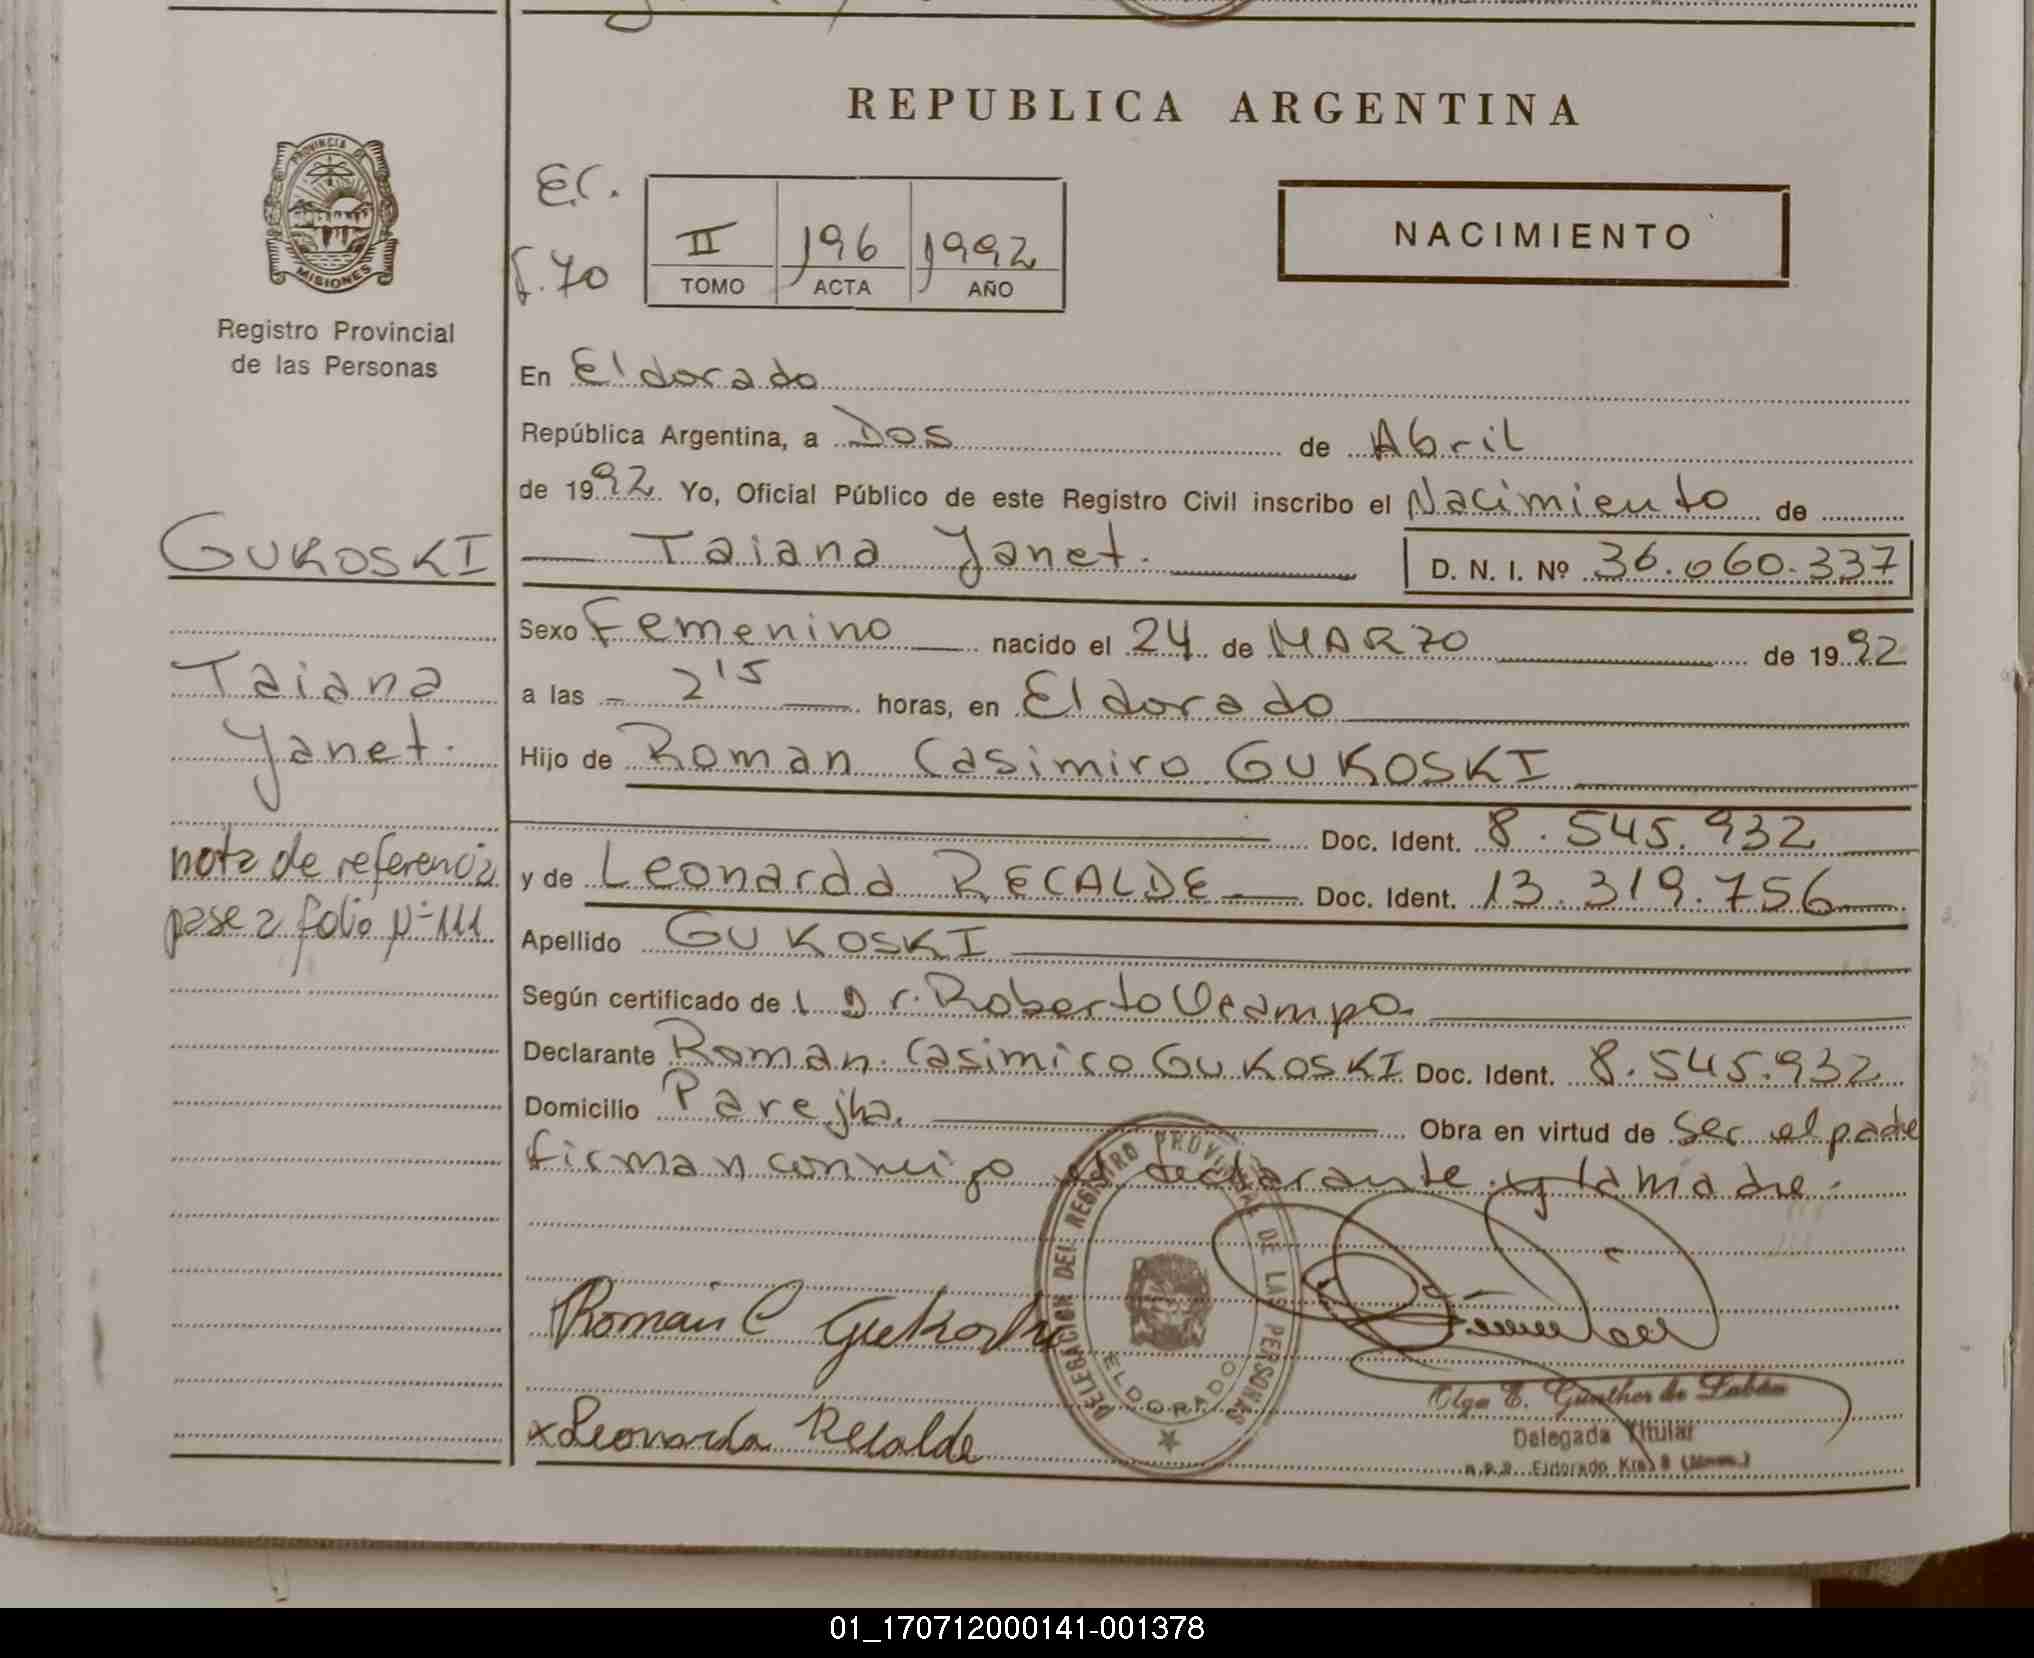 REPUBLICA ARGENTINA
PROVINCIA DE
MISIONES
Registro Provincial
de las Personas
E.C.
f.70
II 196 1992
TOMO ACTA AÑO
NACIMIENTO
En Eldorado
República Argentina, a Dos de Abril
de 1992 Yo, Oficial Público de este Registro Civil inscribo el Nacimiento de
GUKOSKI
Taiana Yanet. D. N. I. Nº 36.060.337
Sexo Femenino nacido el 24 de MARZO de 1992
Taiana
Yanet.
a las 2'15 horas, en Eldorado
Hijo de Roman Casimiro GUKOSKI
Doc. Ident. 8.545.932
nota de referencia
pase a folio Nº 111
y de Leonarda RECALDE Doc. Ident. 13.319.756
Apellido GUKOSKI
Según certificado de l Dr. Roberto Ocampo
Declarante Roman Casimiro GUKOSKI Doc. Ident. 8.545.932
Domicilio Parejha. Obra en virtud de ser el padre
firman conmigo el declarante y la madre.
Roman C Gukoski
x Leonarda Recalde
DELEGACION DEL REGISTRO PROVINCIAL DE LAS PERSONAS
ELDORADO
Olga E. Günther de
Delegada Titular
R.P.P. Eldorado Km. 8 (Mnes.)
01_170712000141-001378